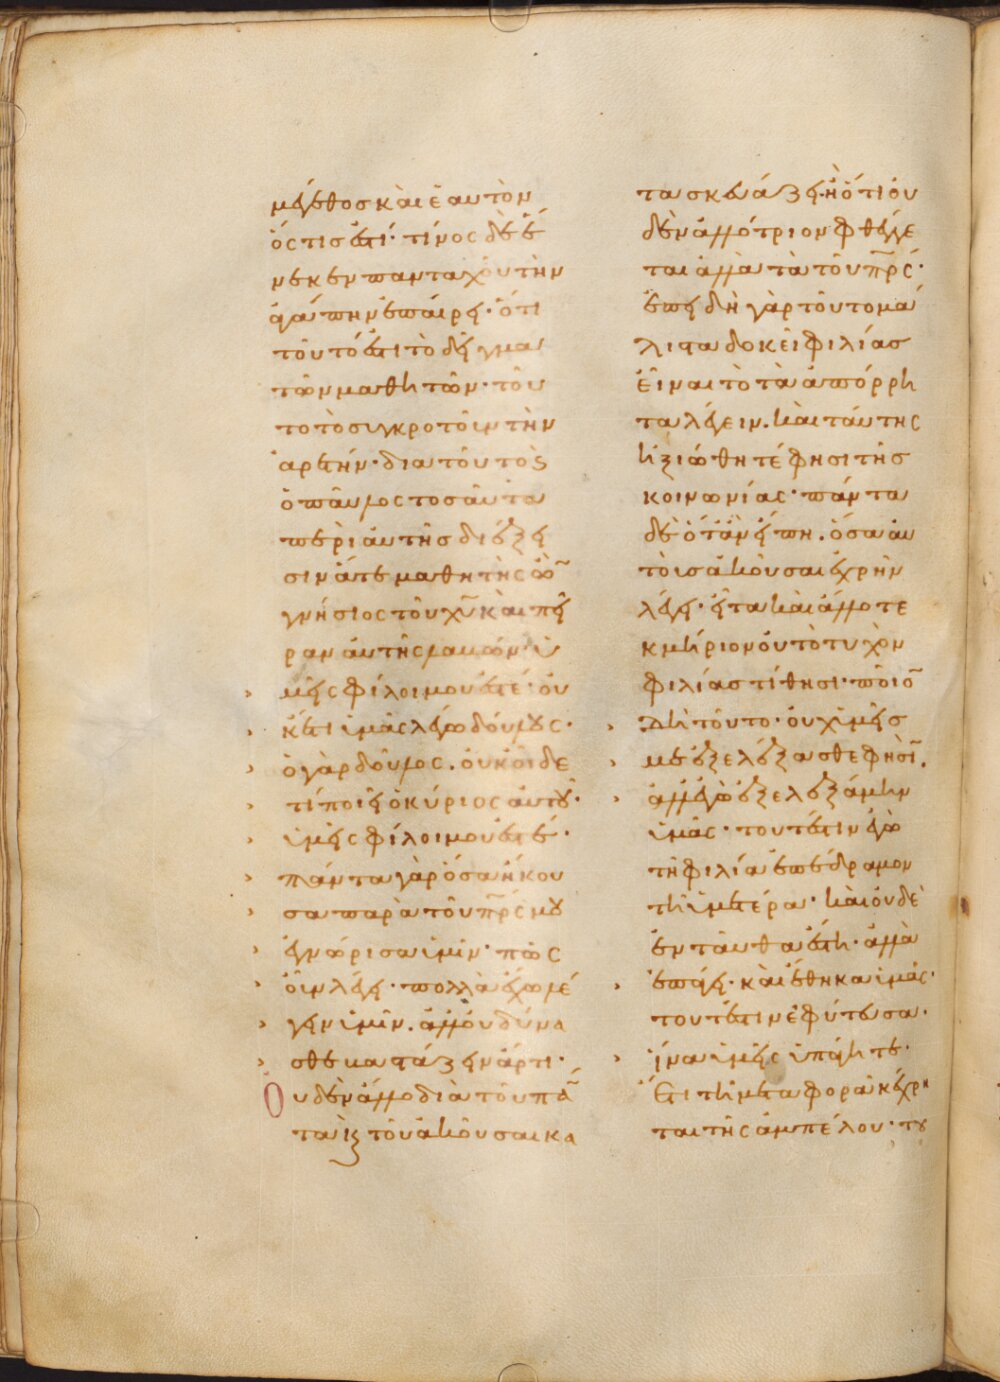 μέγεθος καὶ ἑαυτὸν
ὅς τις ἐστί· τίνος δὲ ἕ
νεκεν πανταχοῦ τὴν
ἀγάπην ἐπαίρει· ὅτι
τοῦτό ἐστι τὸ δεῖγμα
τῶν μαθητῶν· τοῦ
το τὸ συγκροτοῦν τὴν
ἀρετήν· διατοῦτο καὶ
ὁ παῦλος τοσαῦτα
περὶ αὐτῆς διέξει
σιν ἅτε μαθητὴς ὢν
γνήσιος τοῦ χῦ καὶ πεῖ
ραν αὐτῆς λαβών· ὑ
μεῖς φίλοι μου ἐστέ· οὐ
κέτι ὑμᾶς λέγω δούλους·
ὁ γὰρ δοῦλος. οὐκ οἶδε
τί ποιεῖ ὁ κύριος αὐτοῦ·
ὑμεῖς φίλοι μου ἐστέ·
πάντα γὰρ ὅσα ἤκου
σα παρὰ τοῦ πρς μου
ἐγνώρισα ὑμῖν· πῶς
οὖν λέγει· πολλὰ ἔχω λέ
γειν ὑμῖν. ἀλλ' οὐ δύνα
σθε βαστάζειν ἄρτι·
Οὐδὲν ἄλλο διὰ τοῦ πάν
τα καὶ τοῦ ἀκοῦσαι κα
τασκευάζει· ἢ ὅτι οὐ
δὲν ἀλλότριον φθέγγε
ται ἀλλὰ τὰ τοῦ πρς·
ἐπειδὴ γὰρ τοῦτο μά
λιστα δοκεῖ φιλίας
εἶναι τὸ τὰ ἀπόρρη
τα λέγειν. καὶ ταύτης
ἠξιώθητέ φησι τῆς
κοινωνίας· πάντα
δὲ ὅταν εἴπη. ὅσα αὐ
τοῖς ἀκοῦσαι ἐχρῆν
λέγει· εἶτα καὶ ἄλλο τε
κμήριον οὐ τὸ τυχὸν
φιλίας τίθησι· ποῖον
δὴ τοῦτο· οὐχ ὑμεῖς
με ἐξελέξασθε φησίν.
ἀλλ' ἐγὼ ἐξελεξάμην
ὑμᾶς· τουτέστιν ἐγὼ
τῆ φιλία ἐπέδραμον
τῆ ὑμετέρα· καὶ οὐδὲ
ἐνταῦθα ἔστη· ἀλλὰ
ἐπάγει· καὶ ἔθηκα ὑμᾶς·
τουτέστιν ἐφύτευσα·
ἵνα ὑμεῖς ὑπάγητε·
Ἔτι τῆ μεταφορᾶ κέχρη
ται τῆς ἀμπέλου· του